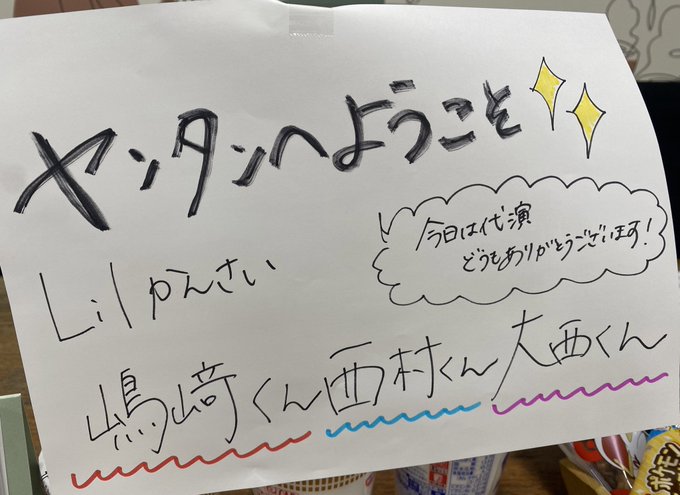 ヤンタンへようこそ
今日は代演
どうもありがとうございます!
Lilかんさい
嶋﨑くん 西村くん 大西くん
ポケモン